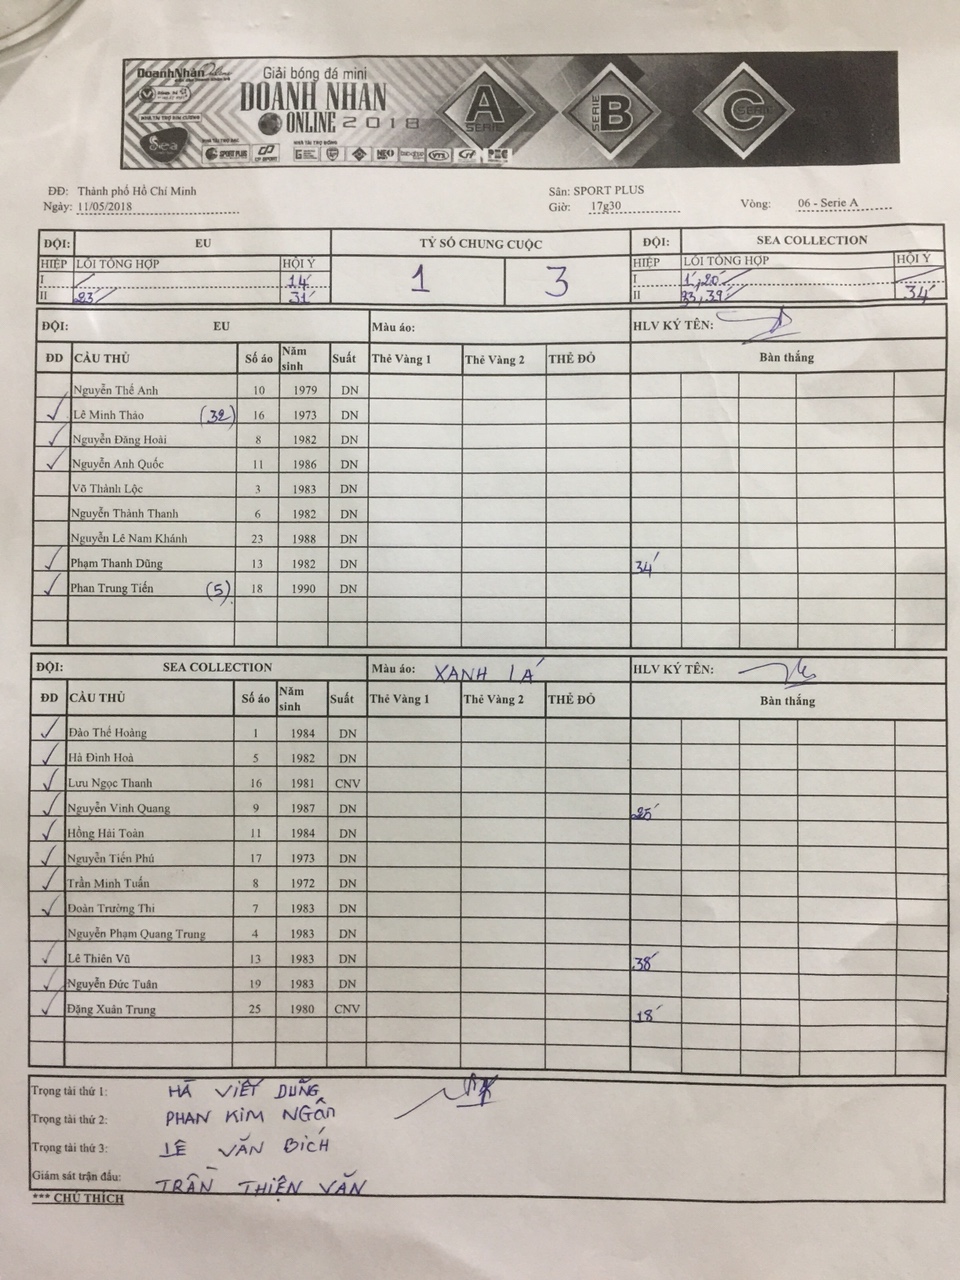 DoanhNhân Online
Giải bóng đá mini
DOANH NHÂN
ONLINE 2018
A SERIE
SERIE B
C SERIE
NHÀ TÀI TRỢ KIM CƯƠNG
Sea
SPORT PLUS
CP SPORT
NHÀ TÀI TRỢ ĐỒNG
NEO
VTL
ĐĐ: Thành phố Hồ Chí Minh
Sân: SPORT PLUS
Ngày: 11/05/2018
Giờ: 17g30
Vòng: 06 - Serie A
ĐỘI: EU TỶ SỐ CHUNG CUỘC ĐỘI: SEA COLLECTION
HIỆP LỖI TỔNG HỢP HỘI Ý 1 3 HIỆP LỖI TỔNG HỢP HỘI Ý
I 14' I 1', 20'
II 23' 31' II 33', 39' 34'
ĐỘI: EU Màu áo: HLV KÝ TÊN:
ĐD CẦU THỦ Số áo Năm sinh Suất Thẻ Vàng 1 Thẻ Vàng 2 THẺ ĐỎ Bàn thắng
Nguyễn Thế Anh 10 1979 DN
✓ Lê Minh Thảo (32) 16 1973 DN
✓ Nguyễn Đăng Hoài 8 1982 DN
✓ Nguyễn Anh Quốc 11 1986 DN
Võ Thành Lộc 3 1983 DN
Nguyễn Thành Thanh 6 1982 DN
Nguyễn Lê Nam Khánh 23 1988 DN
✓ Phạm Thanh Dũng 13 1982 DN 34'
✓ Phan Trung Tiến (5) 18 1990 DN
ĐỘI: SEA COLLECTION Màu áo: XANH LÁ HLV KÝ TÊN:
ĐD CẦU THỦ Số áo Năm sinh Suất Thẻ Vàng 1 Thẻ Vàng 2 THẺ ĐỎ Bàn thắng
✓ Đào Thế Hoàng 1 1984 DN
✓ Hà Đình Hoà 5 1982 DN
✓ Lưu Ngọc Thanh 16 1981 CNV
✓ Nguyễn Vinh Quang 9 1987 DN 25'
✓ Hồng Hải Toàn 11 1984 DN
✓ Nguyễn Tiến Phú 17 1973 DN
✓ Trần Minh Tuấn 8 1972 DN
✓ Đoàn Trường Thi 7 1983 DN
Nguyễn Phạm Quang Trung 4 1983 DN
✓ Lê Thiên Vũ 13 1983 DN 38'
✓ Nguyễn Đức Tuân 19 1983 DN
✓ Đặng Xuân Trung 25 1980 CNV 18'
Trọng tài thứ 1: HÀ VIẾT DŨNG
Trọng tài thứ 2: PHAN KIM NGÂN
Trọng tài thứ 3: LÊ VĂN BÍCH
Giám sát trận đấu: TRẦN THIỆN VĂN
*** CHÚ THÍCH